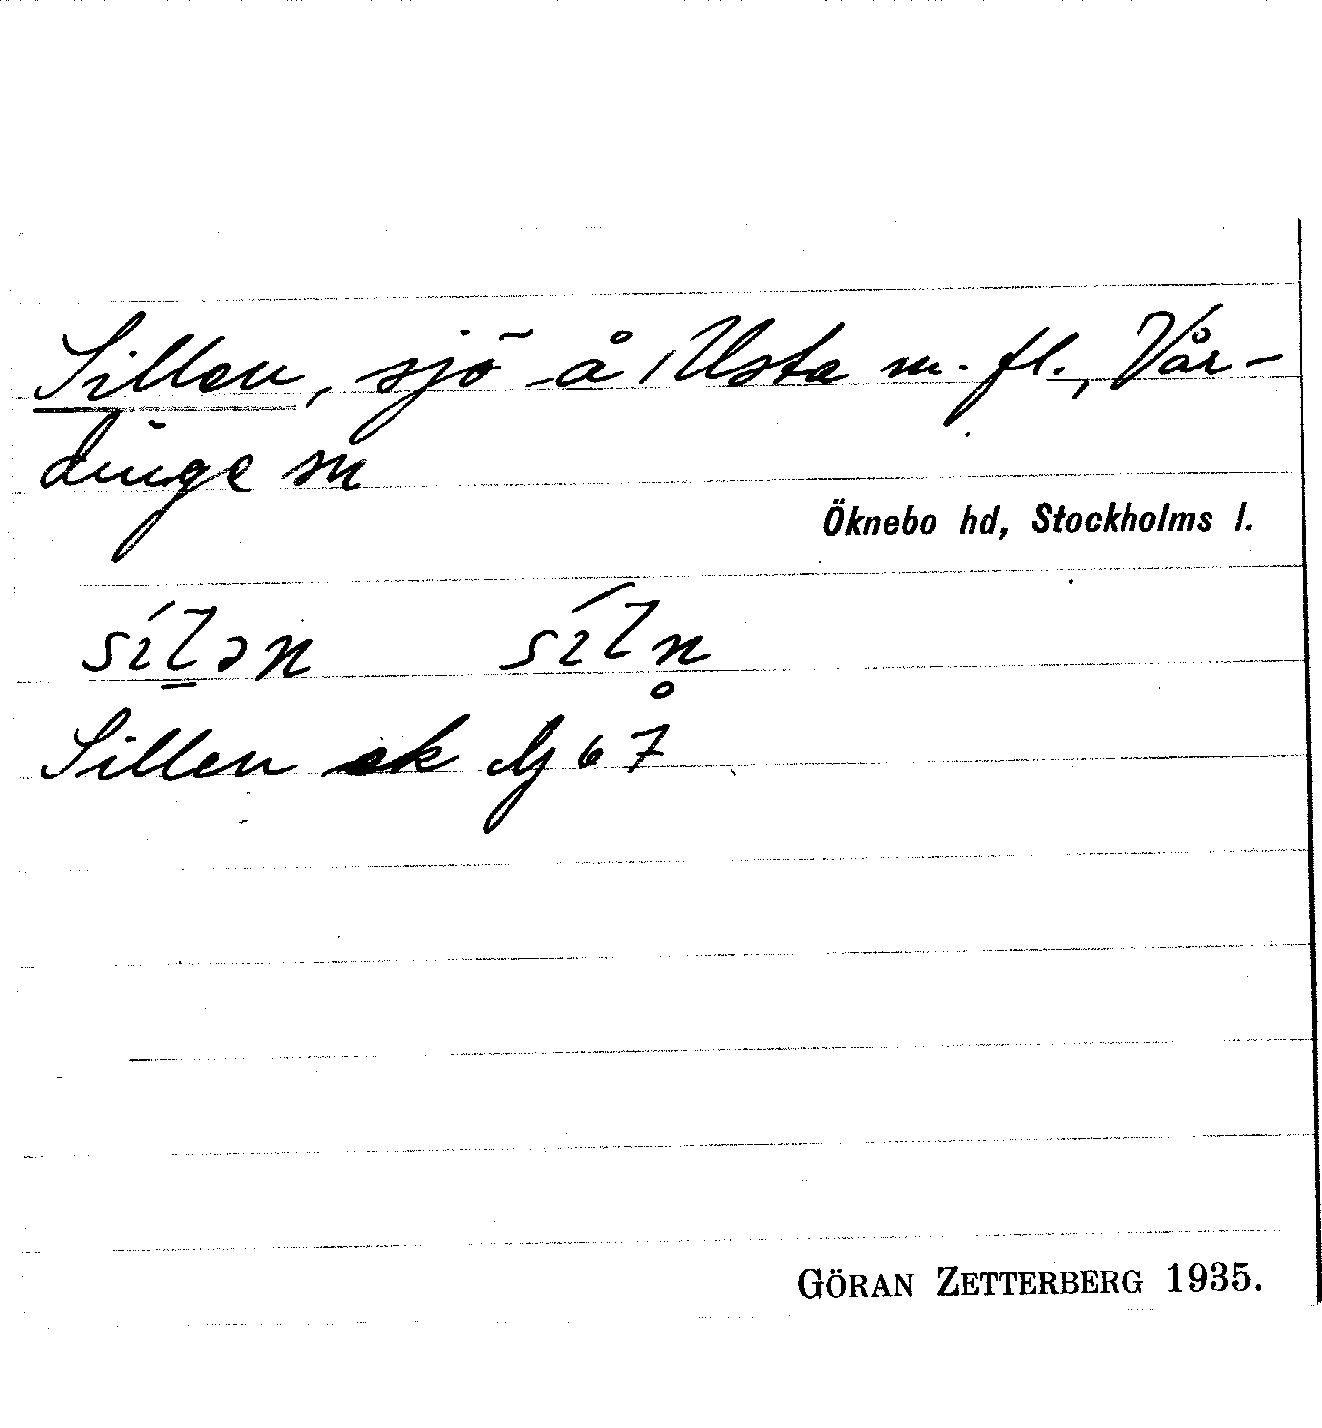 Sillen, sjö å Usta m. fl., Vår-
dinge sn
Öknebo hd, Stockholms l.
síl̲ən síln̥
Sillen ek bl 67
GÖRAN ZETTERBERG 1935.